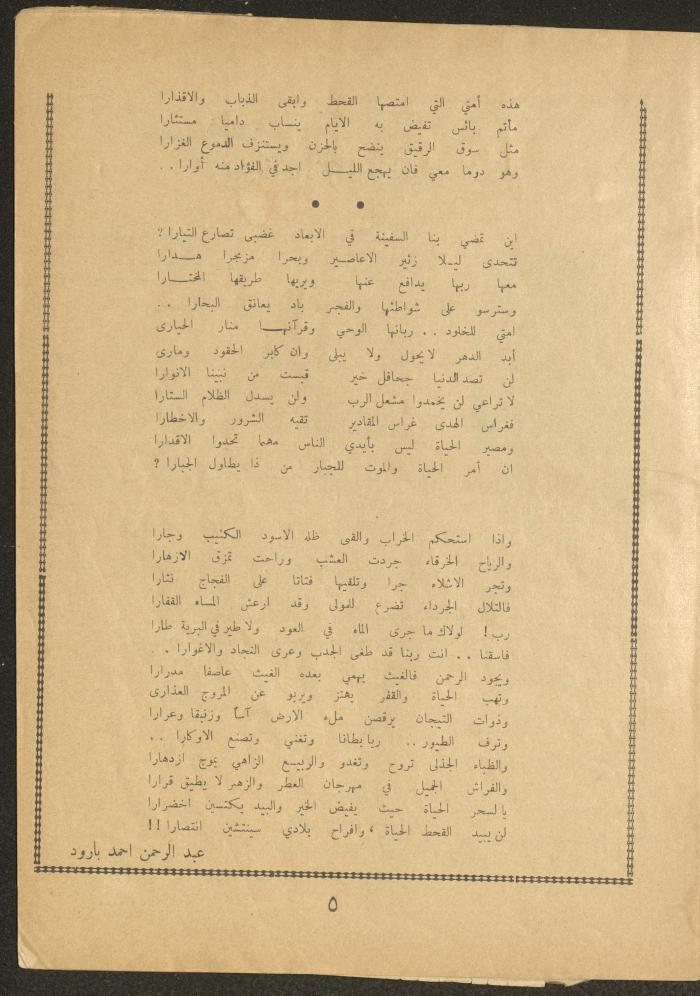 هذه أمتي التي امتصها القحط وابقى الذباب والاقذارا
مأتم بائس تفيض به الايام ينساب داميا مستثارا
مثل سوق الرقيق ينضح بالحزن ويستنزف الدموع الغزارا
وهو دوما معي فان يهجع الليـــل اجد في الفؤاد منه أوارا . .
• •
اين تمضي بنا السفينة في الابعاد غضبى تصارع التيارا ؟
تتحدى ليـلا زئير الاعاصـير وبحرا مزمجرا هــدارا
معها ربها يدافع عنها ويريها طريقها المختــارا
وسترسو على شواطئها والفجر باد يعانق البحارا . .
امتي للخلود . . ربانها الوحي وقرآنهــا منار الحيارى
أبد الدهر لا يحول ولا يبلى وان كابر الحقود ومارى
لن تصد الدنيا جحافل خير قبست من نبينا الانوارا
لا تراعي لن يخمدوا مشعل الرب ولن يسدل الظلام الستارا
فغراس الهدى غراس المقادير تقيه الشرور والاخطارا
ومصير الحياة ليس بأيدي الناس مهما تحدوا الاقدارا
ان أمر الحياة والموت للجبار من ذا يطاول الجبارا ؟
واذا استحكم الخراب والقى ظله الاسود الكئيب وجارا
والرياح الخرقاء جردت العشب وراحت تمزق الازهارا
وتجر الاشلاء جرا وتلقيها فتاتا على الفجاج نثارا
فالتلال الجرداء تضرع للمولى وقد ارعش المساء القفارا
رب ! لولاك ما جرى الماء في العود ولا طير في البرية طارا
فاسقنا . . انت ربنا قد طغى الجدب وعرى النجاد والاغوارا . .
ويجود الرحمن فالغيث يهمي بعده الغيث عاصفا مدرارا
وتهب الحياة والقفر يهتز ويربو عن المروج العذارى
وذوات التيجان يرقصن ملء الارض آسا وزنبقا وعرارا
وترف الطيور .. ريا بطانا وتغني وتصنع الاوكارا ..
والظباء الجذلى تروح وتغدو والربيـــع الزاهي يموج ازدهارا
والفراش الجميل في مهرجان العطر والزهر لا يطيق قرارا
يا لسحر الحياة حيث يفيض الخير والبيد يكتسين اخضرارا
لن يبيد القحط الحياة ، وافراح بلادي سينتشين انتصارا !!
عبد الرحمن احمد بارود
٥